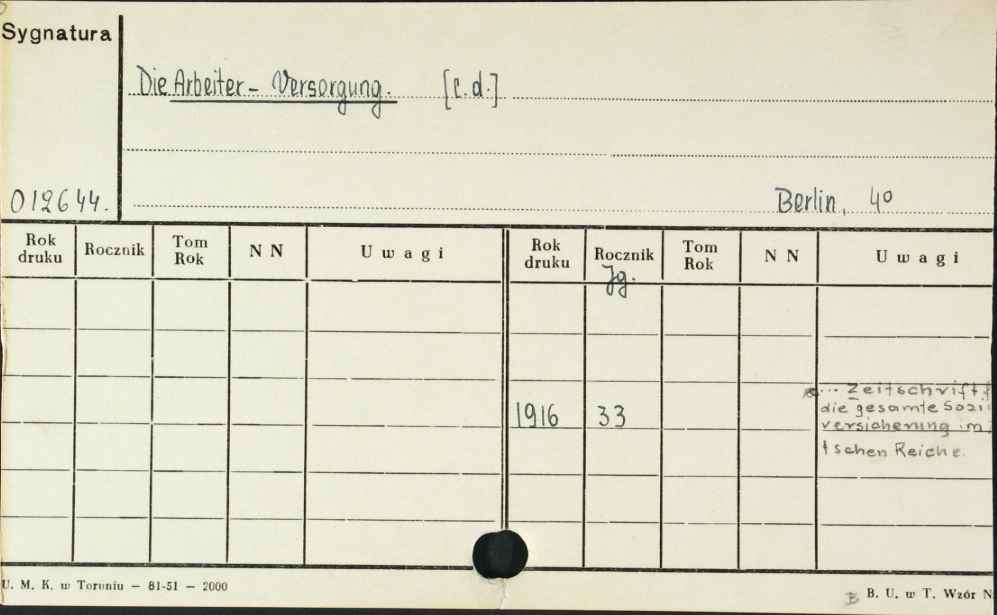 Sygnatura
Die Arbeiter - Versorgung. [c.d.]
012644.
Berlin, 4º
Rok druku Rocznik Tom Rok N N Uwagi Rok druku Rocznik Tom Rok N N Uwagi
Jg.
... Zeitschrift f
1916 33 die gesamte Sozi
versicherung im
tschen Reiche.
U. M. K. w Toruniu — 81-51 — 2000
B B. U. w T. Wzór N